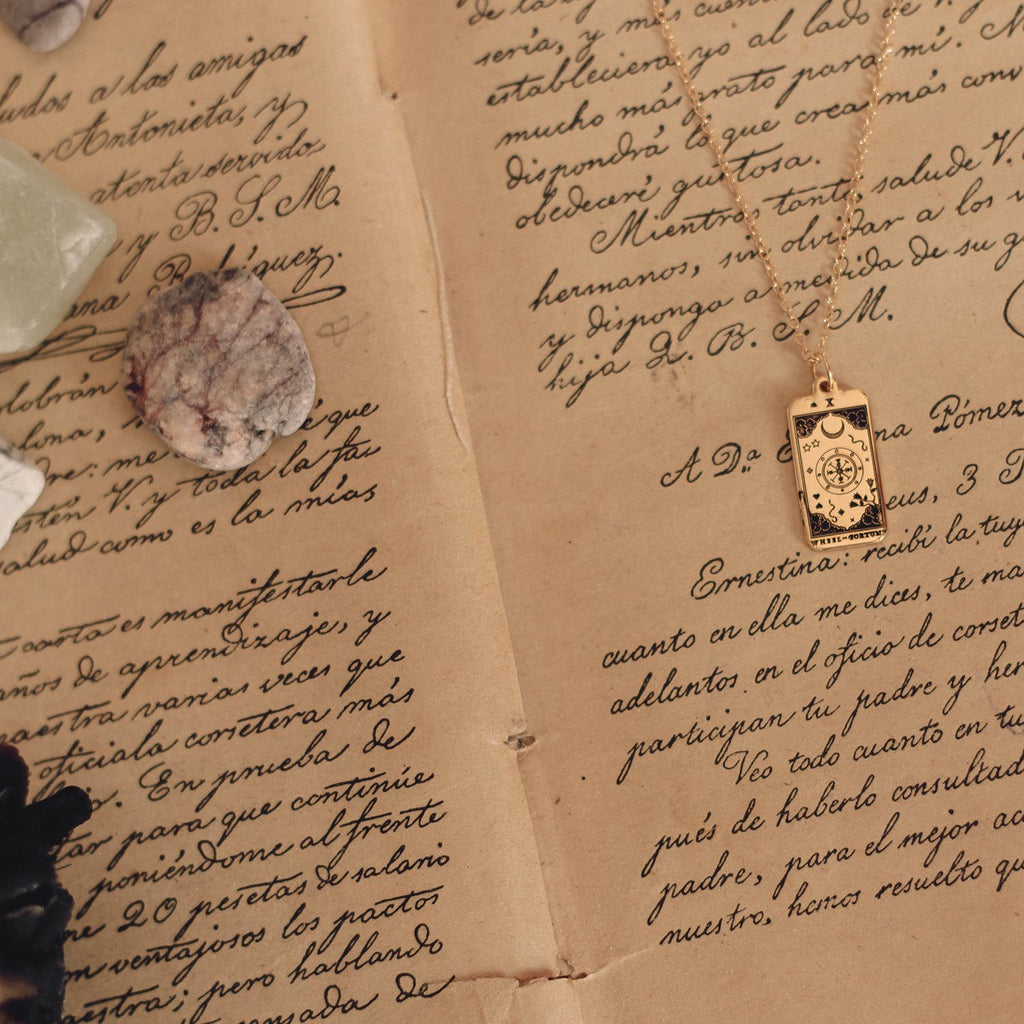 a las amigas
Antonieta, y
atenta servido
y B. S. M.
olobrán
é que
dre: me
stén V. y toda la fa
salud como es la mías
carta es manifestarle
años de aprendizaje, y
maestra varias veces que
oficiala corsetera más
En prueba de
para que continúe
poniéndome al frente
20 pesetas de salario
ventajosos los pactos
pero hablando
de
sería, y más
estableciera yo al lado de V.
mucho más grato para mí.
dispondrá lo que crea más conv
obedeceré gustosa.
Mientras tanto, salude V.
hermanos, sin olvidar a los
y disponga a medida de su
hija Q. B. S. M.
A Da. na Pómez
eus, 3
Ernestina: recibí la tuy
cuanto en ella me dices, te ma
adelantos en el oficio de corset
participan tu padre y her
Veo todo cuanto en tu
pués de haberlo consultad
padre, para el mejor ac
nuestro, hemos resuelto qu
X
WHEEL OF FORTUNE